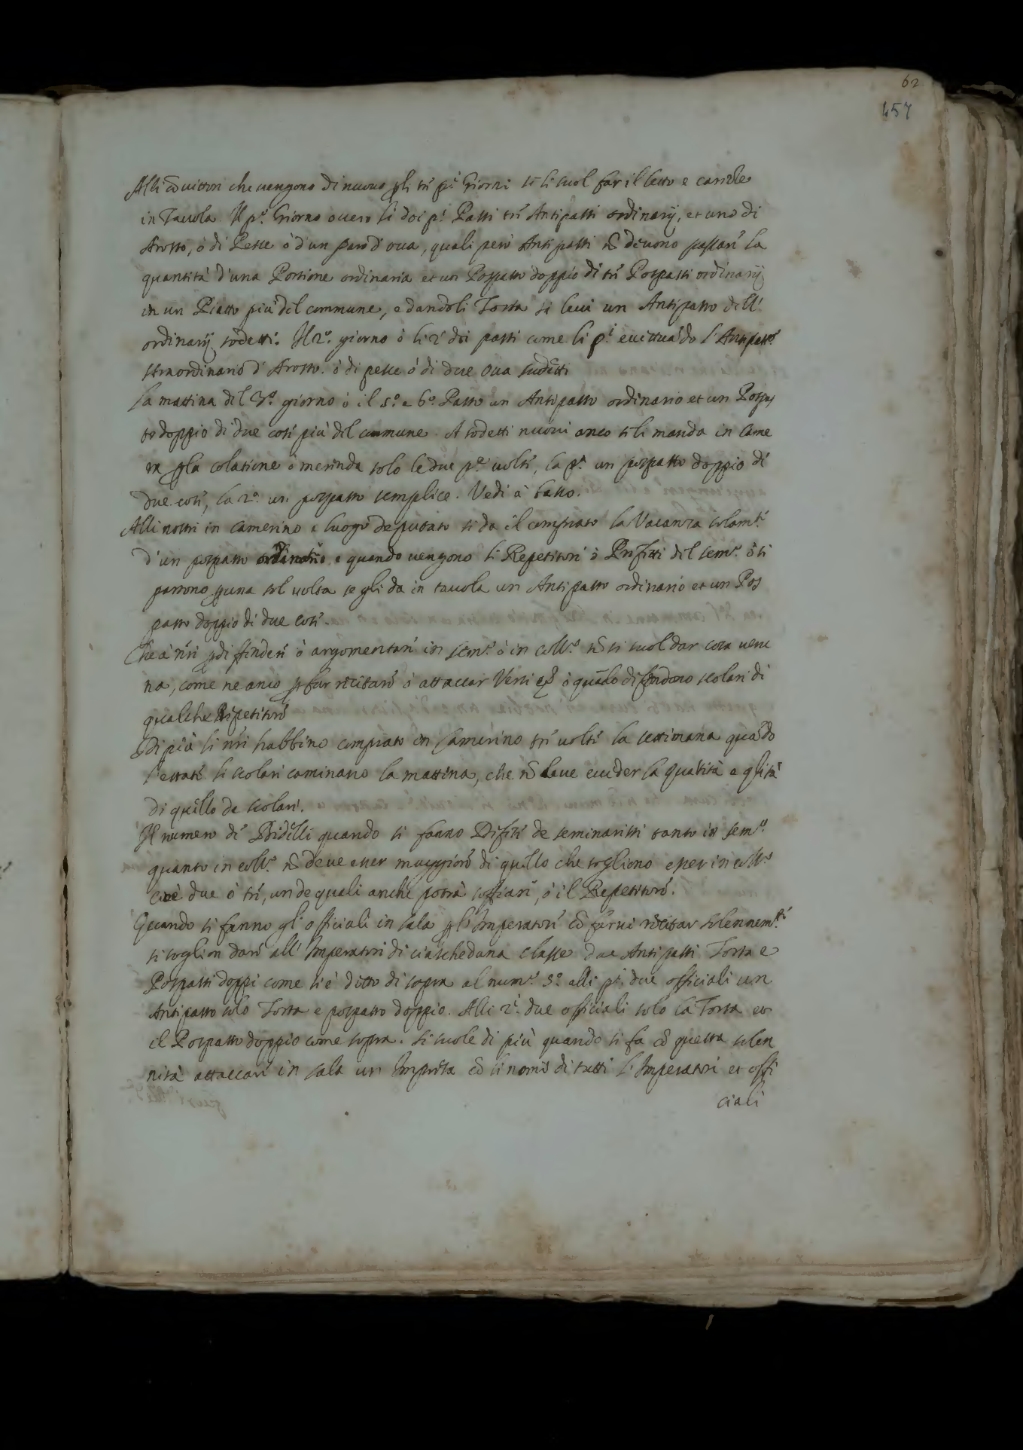 62
457
Alli cõvittori che vengono di nuovo gli tri pi Giorni si li suol far il letto e carezze
in Tavola Il p.º Giorno overo li doi pi Pasti tri Antipasti ordinarij, et uno di
Arosto, ò di Pesce ò d'un paro d'ova, quali però Antipasti nõ devono passar la
quantità d'una Portione ordinaria et un Pospasto doppio di tri Pospasti ordinarij
in un Piatto più del commune, e dandoli Torta si levi un Antipasto dell'
ordinarij sodetti. Il 2.º giorno ò li 2i doi pasti come li pi eccettuãdo l'Antipasto
straordinario d'Arosto. ò di pesce ò di due ova sudetti
La mattina del 3.º giorno ò il 5.º e 6.º Pasto un Antipasto ordinario et un Pospas
to doppio di due cose più del commune. A sodetti nuovi anco si li manda in Came
ra p la colatione ò merenda solo le due p.e volte, la p.a un pospasto doppio di
due cose, la 2.a un pospasto semplice. Vedi à basso.
Alli nostri in Camerino e luogo deputato si da il comprato la Vacanza solam.te
d'un pospasto ordinario e quando vengono li Repetitori ò Prefetti del sem.º ò si
partono p una sol volta se gli da in tavola un Antipasto ordinario et un Pos
pasto doppio di due cose.
Che à nri p diffenderi ò argomentari in sem.º ò in coll.º nõ si suol dar cosa veru
na, come ne anco p far recitare ò attaccar Versi ò quãdo difendono scolari di
qualche Ripetitore
Di più li nri habbino comprato in Camerino tri volte la settimana quãdo
l'estate li scolari caminano la mattina, che nõ deve ecceder la quãtità e qlità
di quello de scolari.
Il numero de Bidelli quando si fanno Difese de seminaristi tanto in sem.º
quanto in coll.º nõ deve esser maggiore di quello che sogliono esser in coll.º
cioè due ò tri, un de quali anche potrà essere ò il Repetitore.
Quando si fanno gl'officiali in sala p l'Imperatori cõ farui recitar solennem.te
si soglion dare all'Imperatori di ciascheduna classe due Antipasti Torta e
Pospasti doppi come si è detto di sopra al num.º 5.º alli pi due officiali un
Antipasto solo Torta e pospasto doppio. Alli 2i due officiali solo la Torta et
il Pospasto doppio come sopra. Si suole di più quando si fa cõ questa solen
nità attaccare in sala un Impresa cõ li nomi di tutti l'Imperatori et offi
ciali